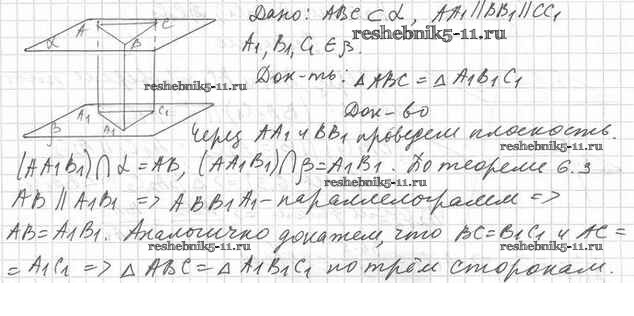 Дано: ABC ⊂ α, AA1 ∥ BB1 ∥ CC1
A C
B
α
A1, B1, C1 ∈ β.
reshebnik5-11.ru
Док-ть: △ABC = △A1B1C1
reshebnik5-11.ru
Док-во
A1 C1
β A1
reshebnik5-11.ru
Через AA1 и BB1 проведем плоскость.
(AA1B1) ∩ α = AB, (AA1B1) ∩ β = A1B1. По теореме 6.3
reshebnik5-11.ru
AB ∥ A1B1 => ABB1A1 - параллелограмм =>
AB = A1B1. Аналогично докажем, что BC = B1C1 и AC =
reshebnik5-11.ru
reshebnik5-11.ru
= A1C1 => △ABC = △A1B1C1 по трём сторонам.